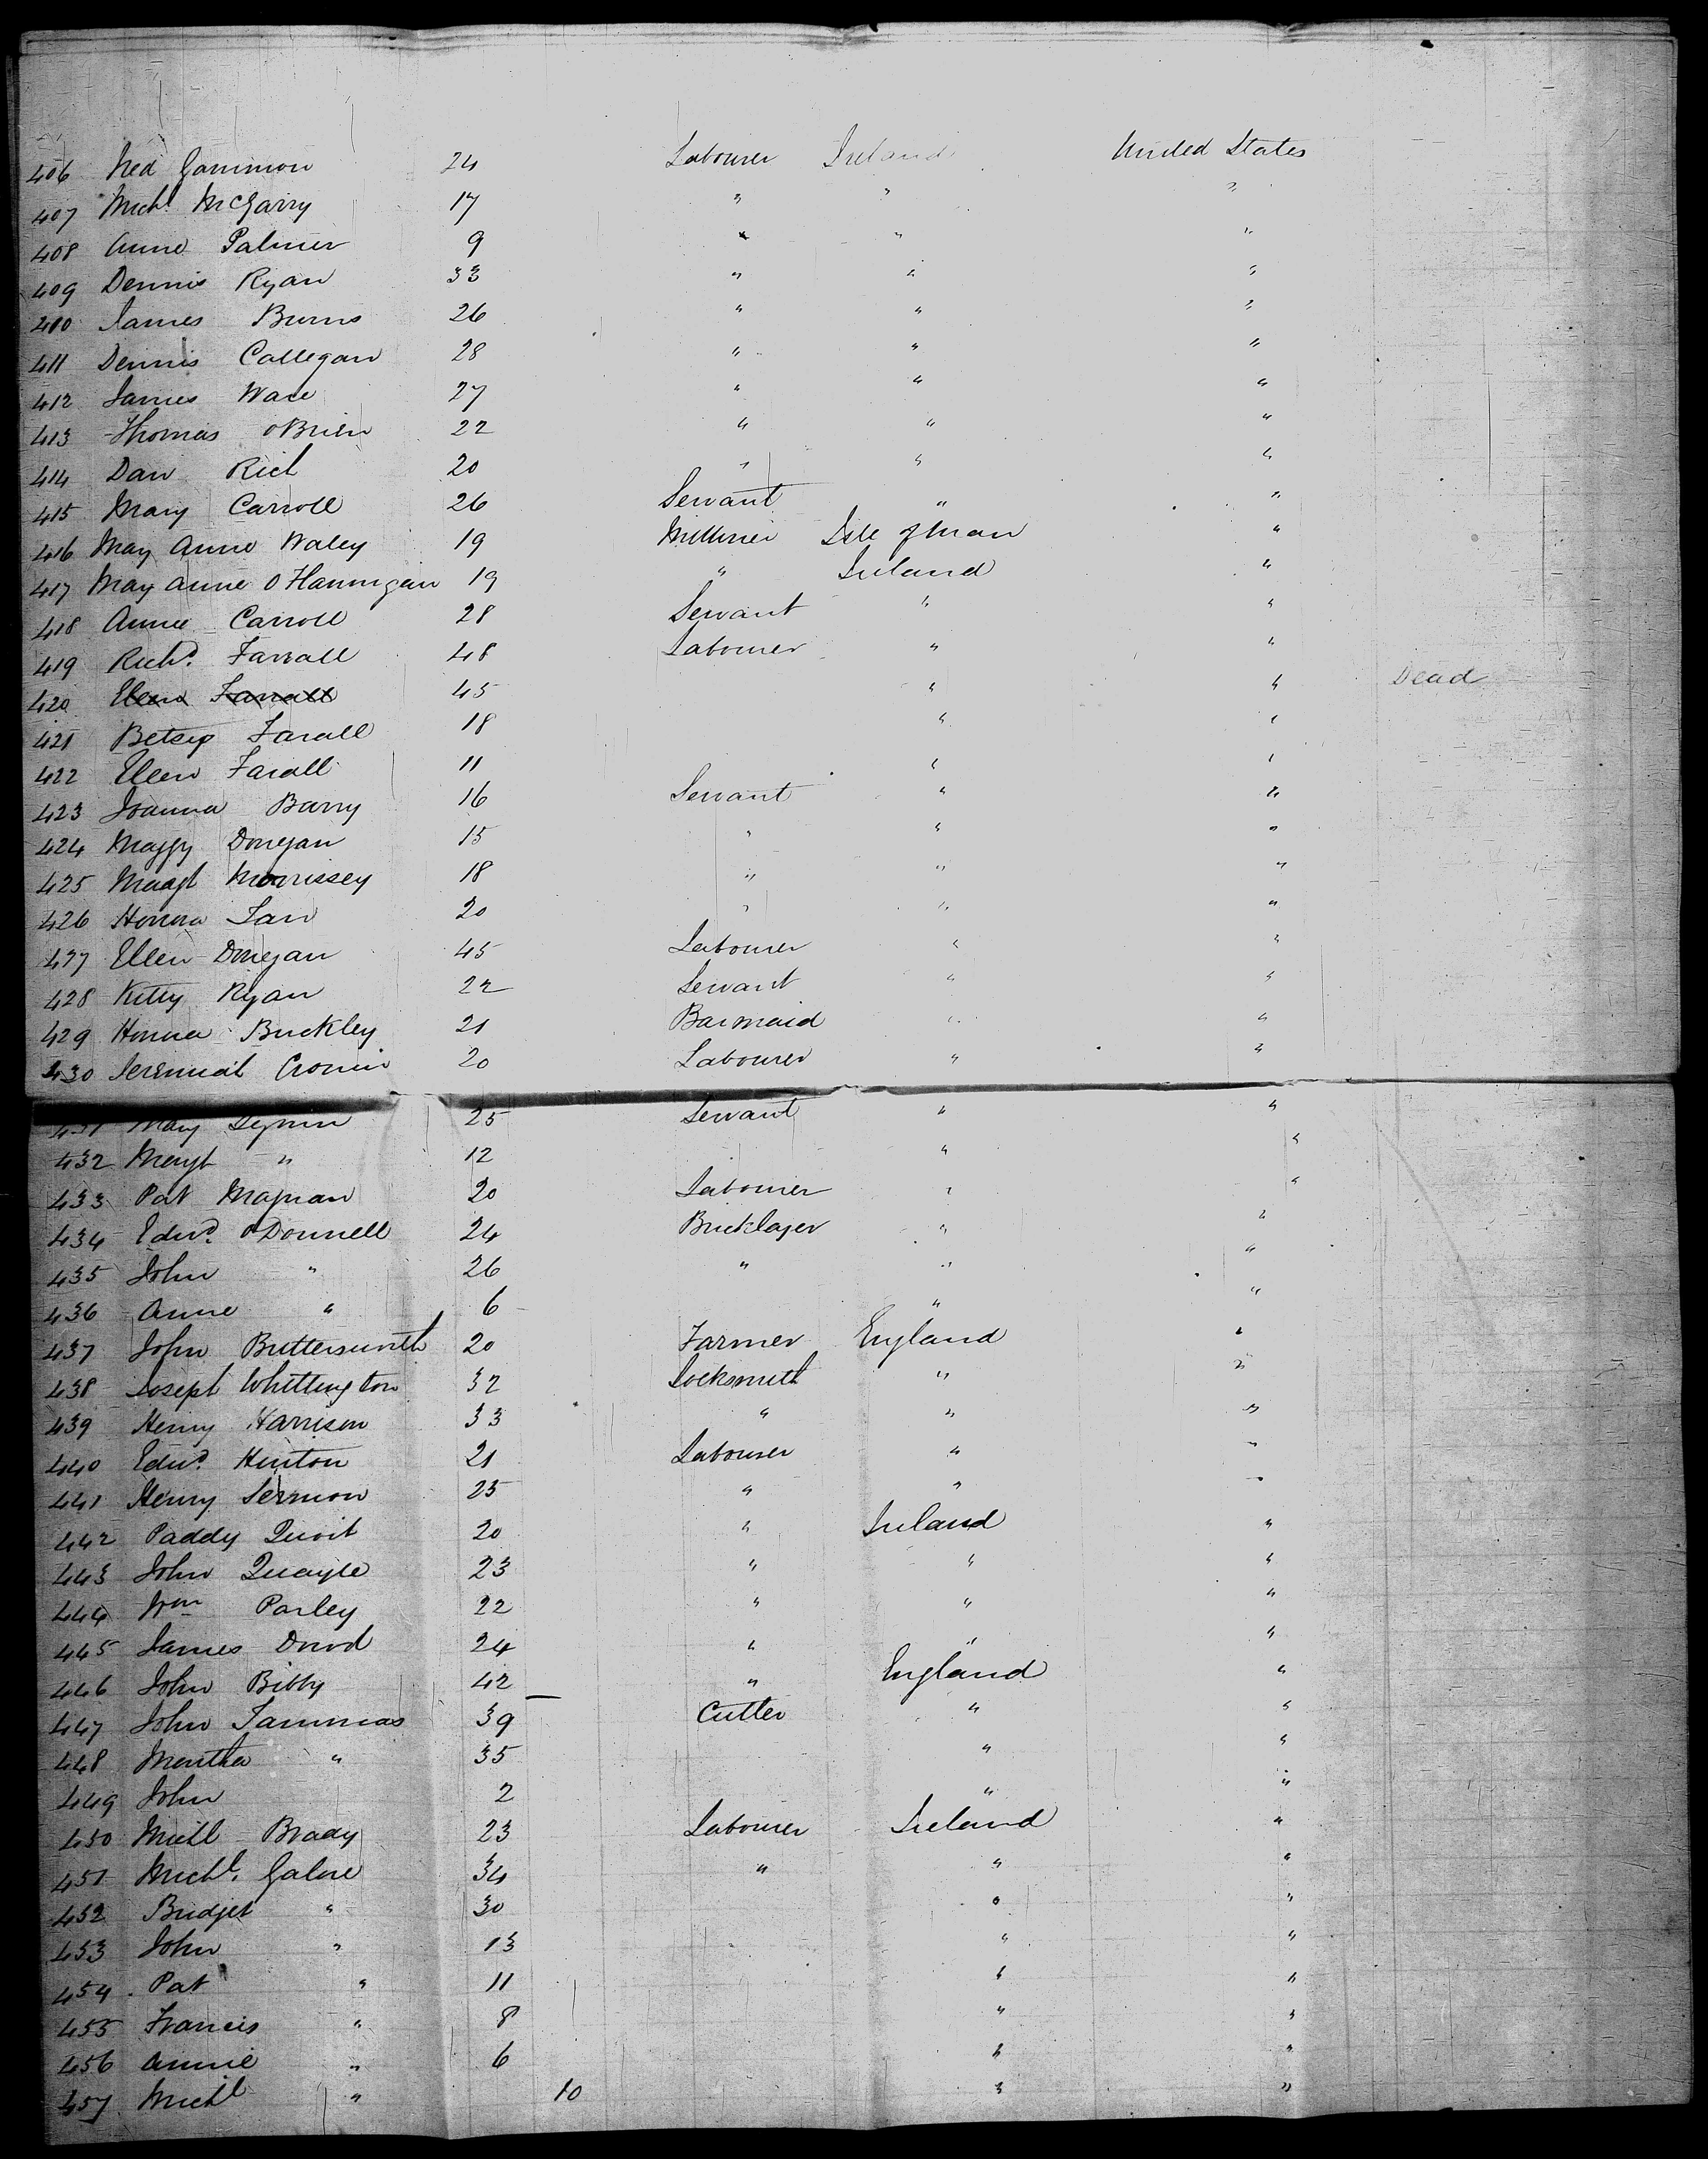 406 Ned Gammon 24 Labourer Ireland United States
407 Michl McGarry 17 " " "
408 Anne Palmer 9 " " "
409 Dennis Ryan 33 " " "
410 James Burns 26 " " "
411 Dennis Callegan 28 " " "
412 James Ware 27 " " "
413 Thomas oBrien 22 " " "
414 Dan Rich 20 " " "
415 Mary Carroll 26 Servant " "
416 May Anne Waley 19 Milliner Isle of Man "
417 May Anne O Hannigan 19 " Ireland "
418 Annie Carroll 28 Servant " "
419 Richd. Farrall 48 Labourer " "
420 Elen Farrall 45 " " Dead
421 Betsey Farall 18 " "
422 Elen Farall 11 " "
423 Joanna Barry 16 Servant " "
424 Maggy Donegan 15 " " "
425 Magt Morrissey 18 " " "
426 Honora 20 " " "
427 Ellen Donegan 45 Labourer " "
428 Kitty Ryan 22 Servant " "
429 Honora Buckley 21 Barmaid " "
430 Jeremiah Cronin 20 Labourer " "
431 Mary 25 Servant " "
432 Margt " 12 " "
433 Pat Magnan 20 Labourer " "
434 Edwd. oDonnell 24 Bricklayer " "
435 John " 26 " " "
436 Anne " 6 " "
437 John Buttersworth 20 Farmer England "
438 Joseph Whittington 32 Locksmith " "
439 Henry Harrison 33 " " "
440 Edwd. Hinton 21 Labourer " "
441 Henry Sermon 25 " " "
442 Paddy Quoit 20 " Ireland "
443 John Quayle 23 " " "
444 Wm Parley 22 " " "
445 James Dowd 24 " " "
446 John Bibby 42 " England "
447 John Tammas 39 Cutter " "
448 Martha " 35 " "
449 John 2 " "
450 Michl Brady 23 Labourer Ireland "
451 Michl. Galore 34 " " "
452 Bridget " 30 " "
453 John " 13 " "
454 Pat " 11 " "
455 Francis " 8 " "
456 Annie " 6 " "
457 Michl " 10 " "